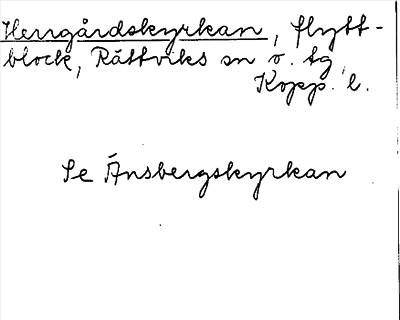 Herrgårdskyrkan, flytt-
block, Rättviks sn o. tg,
Kopp. l.
Se Änsbergskyrkan